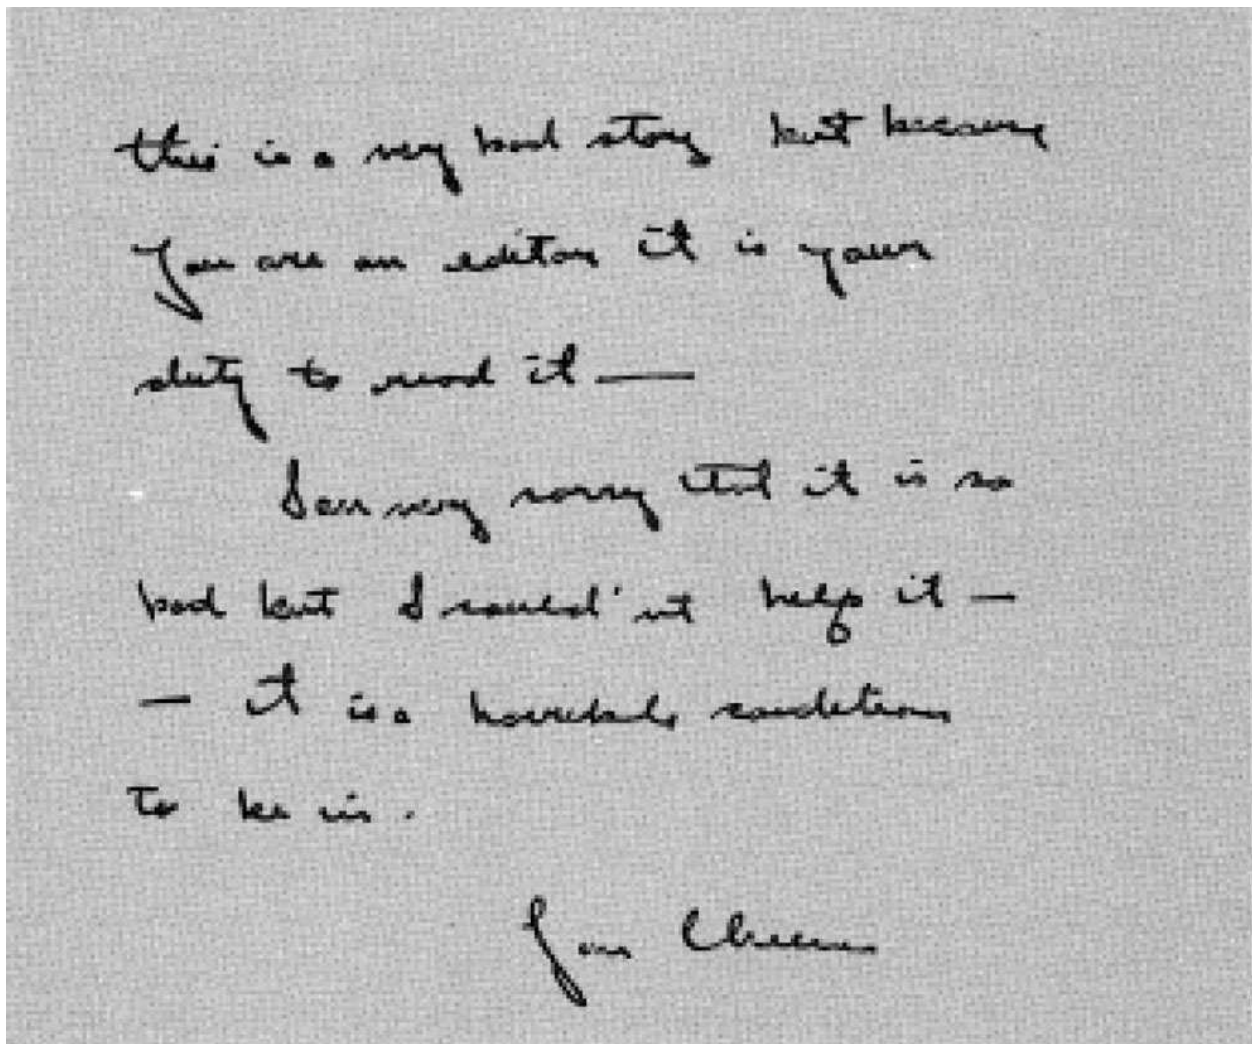 this is a very bad story but because
you are an editor it is your
duty to read it —
I am very sorry that it is so
bad but I could'nt help it —
— it is a horrible condition
to be in.